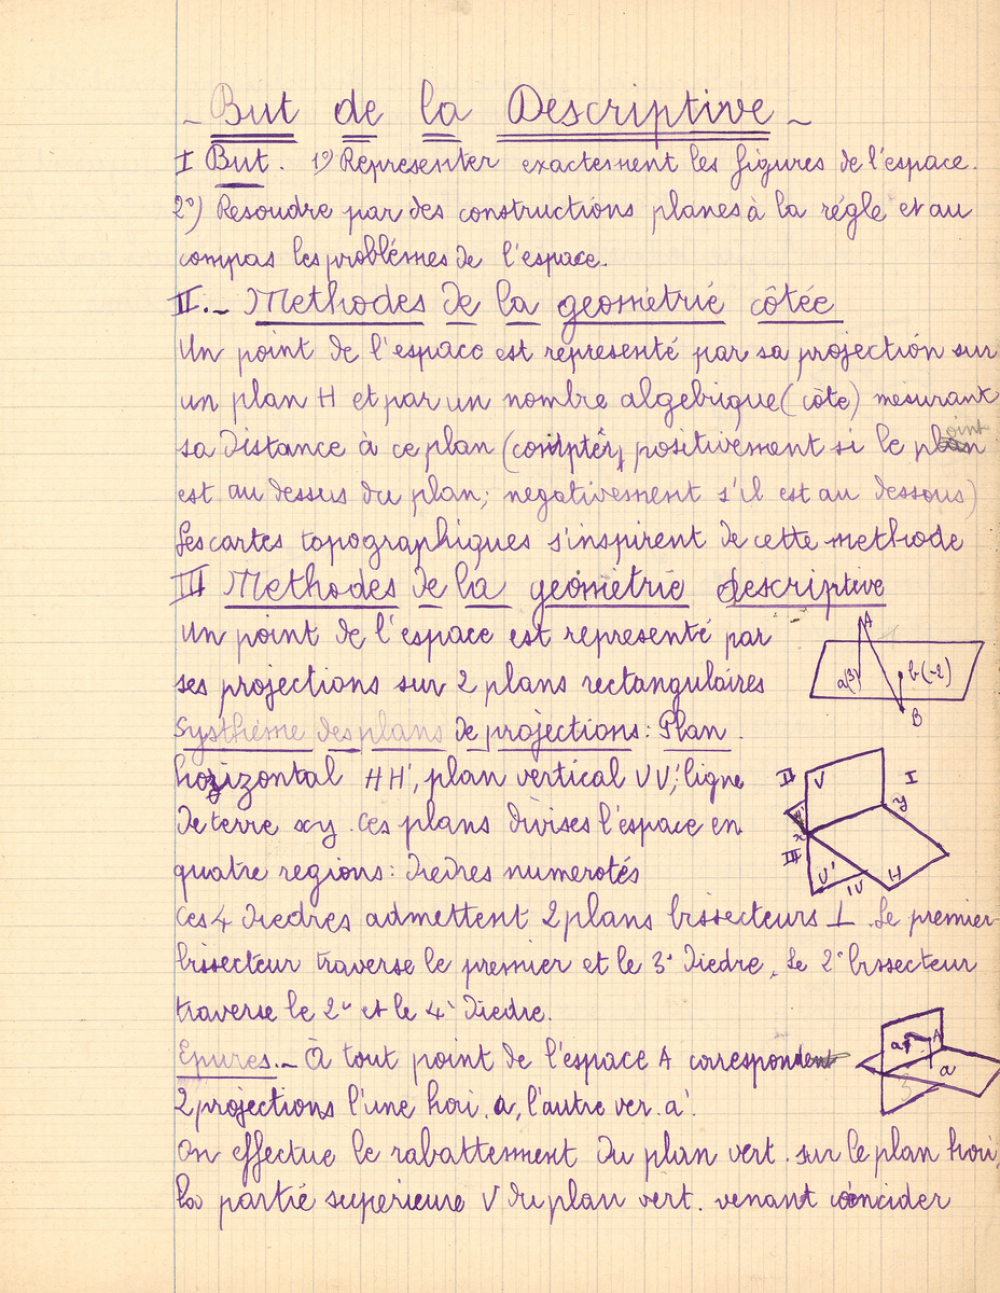 ~ But de la Descriptive ~
I But. 1º) Représenter exactement les figures de l'espace.
2º) Résoudre par des constructions planes à la régle et au
compas les problèmes de l'espace.
II.~ Methodes de la geométrié côtée
Un point de l'espace est représenté par sa projection sur
un plan H et par un nombre algebrique (côte) mesurant
sa distance à ce plan (compter positivement si le point
est au dessus du plan; negativement s'il est au dessous)
Les cartes topographiques s'inspirent de cette methode
III Methodes de la geométrié descriptive
Un point de l'espace est representé par
ses projections sur 2 plans rectangulaires
Systhéme des plans de projections: Plan.
horizontal HH', plan vertical VV', ligne
de terre xy. Ces plans divises l'espace en
quatre regions: diedres numerotés
Ces 4 diedres admettent 2 plans bissecteurs ⊥. Le premier
bissecteur traverse le premier et le 3º diedre, Le 2º bissecteur
traverse le 2º et le 4º diedre.
Epures.~ À tout point de l'espace A correspond
2 projections l'une hori. a, l'autre ver. a'.
On effectue le rabattement du plan vert. sur le plan hori
la partié supérieure V du plan vert. venant coïncider
A
a(3)
b(-2)
B
II
V
I
y
H'
x
III
V'
IV
H
a'
A
a
3